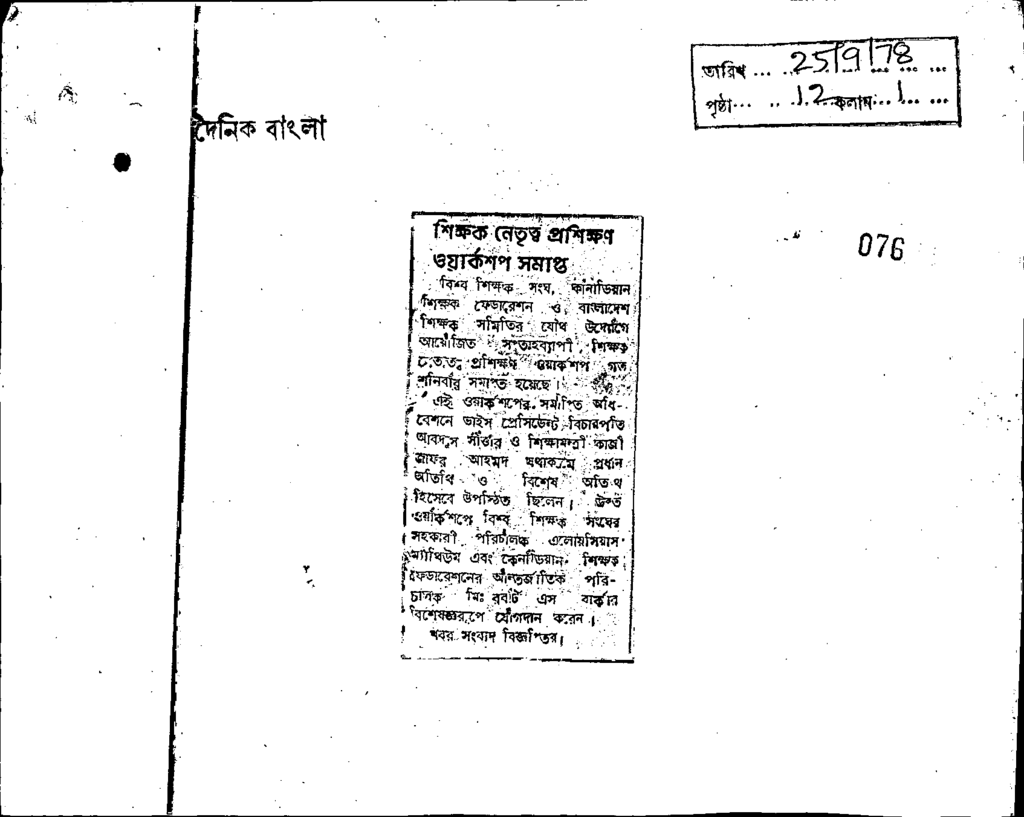 তারিখ ... 25/9/78 ...
পৃষ্ঠা... 12 কলাম... 1 ...
দৈনিক বাংলা
076
শিক্ষক নেতৃত্ব প্রশিক্ষণ
ওয়ার্কশপ সমাপ্ত
বিশ্ব শিক্ষক সংঘ, কানাডিয়ান
শিক্ষক ফেডারেশন ও বাংলাদেশ
শিক্ষক সমিতির যৌথ উদ্যোগে
আয়োজিত সপ্তাহব্যাপী শিক্ষক
নেতৃত্ব প্রশিক্ষণ ওয়ার্কশপ গত
শনিবার সমাপ্ত হয়েছে।
এই ওয়ার্কশপের সমাপ্তি অধি-
বেশনে ভাইস প্রেসিডেন্ট বিচারপতি
আবদুস সাত্তার ও শিক্ষামন্ত্রী কাজী
জাফর আহমদ যথাক্রমে প্রধান
অতিথি ও বিশেষ অতিথি
হিসেবে উপস্থিত ছিলেন। উক্ত
ওয়ার্কশপে বিশ্ব শিক্ষক সংঘের
সহকারী পরিচালক এলোয়সিয়াস
ম্যাথিউম এবং কেনাডিয়ান শিক্ষক
ফেডারেশনের আন্তর্জাতিক পরি-
চালক মিঃ রবার্ট এস বার্কার
বিশেষজ্ঞরূপে যোগদান করেন।
খবর সংবাদ বিজ্ঞপ্তির।